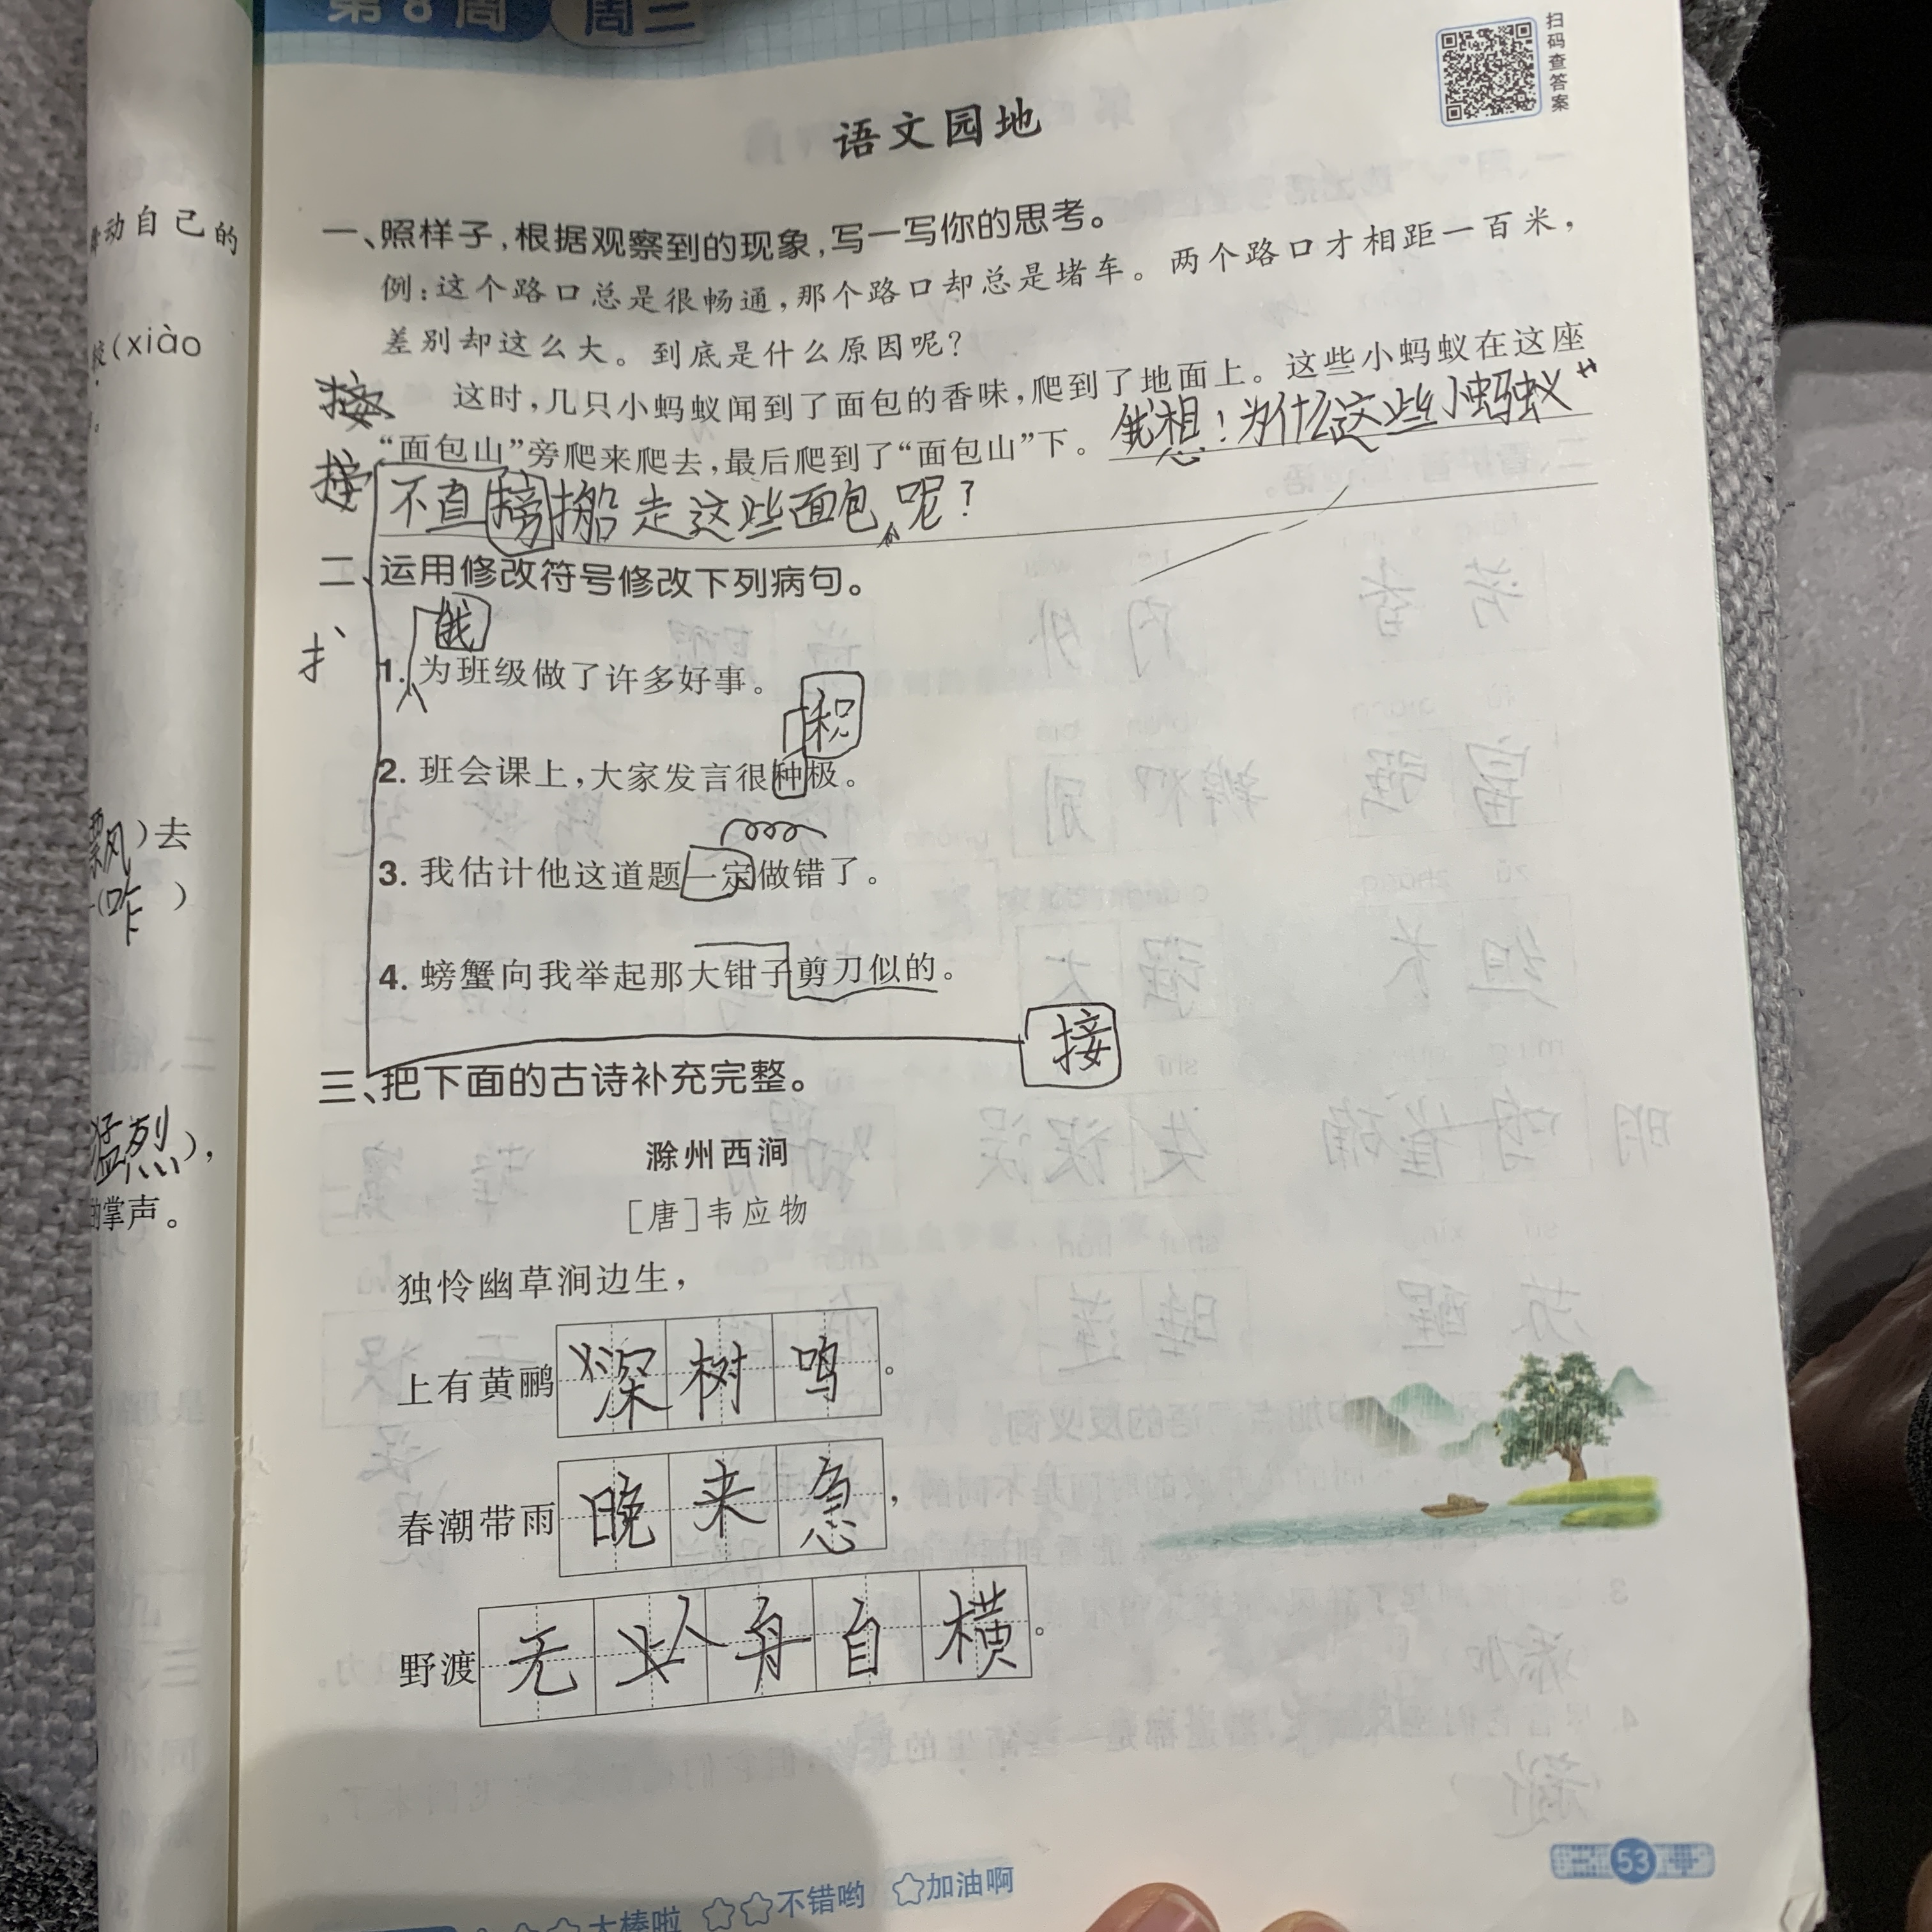 第8周 周三
扫码查答案
语文园地
动自己的
(xiào
飘)去
(咋)
猛烈),
的掌声。
一、照样子,根据观察到的现象,写一写你的思考。
例:这个路口总是很畅通,那个路口却总是堵车。两个路口才相距一百米,
差别却这么大。到底是什么原因呢?
这时,几只小蚂蚁闻到了面包的香味,爬到了地面上。这些小蚂蚁在这座
接
“面包山”旁爬来爬去,最后爬到了“面包山”下。我想!为什么这些小蚂蚁
接
不直 走这些面包呢?
二、运用修改符号修改下列病句。
我
扌
1. 为班级做了许多好事。
积
2. 班会课上,大家发言很种极。
3. 我估计他这道题一定做错了。
4. 螃蟹向我举起那大钳子剪刀似的。
接
三、把下面的古诗补充完整。
滁州西涧
[唐]韦应物
独怜幽草涧边生,
上有黄鹂深树鸣。
春潮带雨晚来急,
野渡无人舟自横。
53
太棒啦 不错哟 加油啊